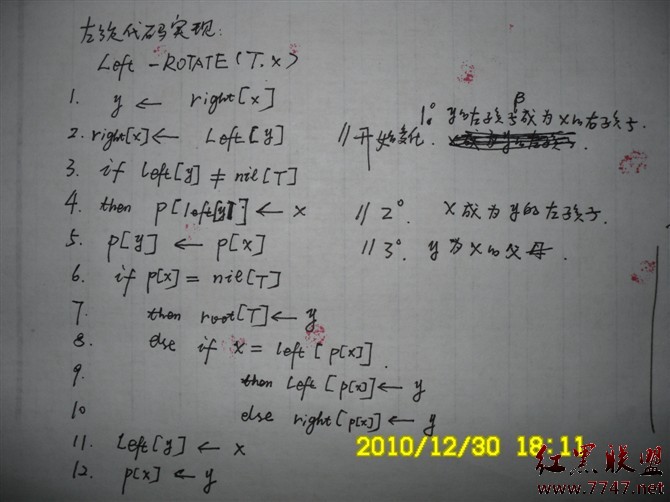 左旋代码实现:
Left-ROTATE(T.x)
1. y ← right[x]
2. right[x] ← Left[y] // 开始变化. 1° y的左孩子β成为x的右孩子.
3. if left[y] ≠ nil[T]
4. then p[left[y]] ← x // 2°. x成为y的左孩子.
5. p[y] ← p[x] // 3°. y为x的父母.
6. if p[x] = nil[T]
7. then root[T] ← y
8. else if x = left[p[x]]
9. then left[p[x]] ← y
10 else right[p[x]] ← y
11. Left[y] ← x
12. p[x] ← y
2010/12/30 18:11
红黑联盟
www.7747.net